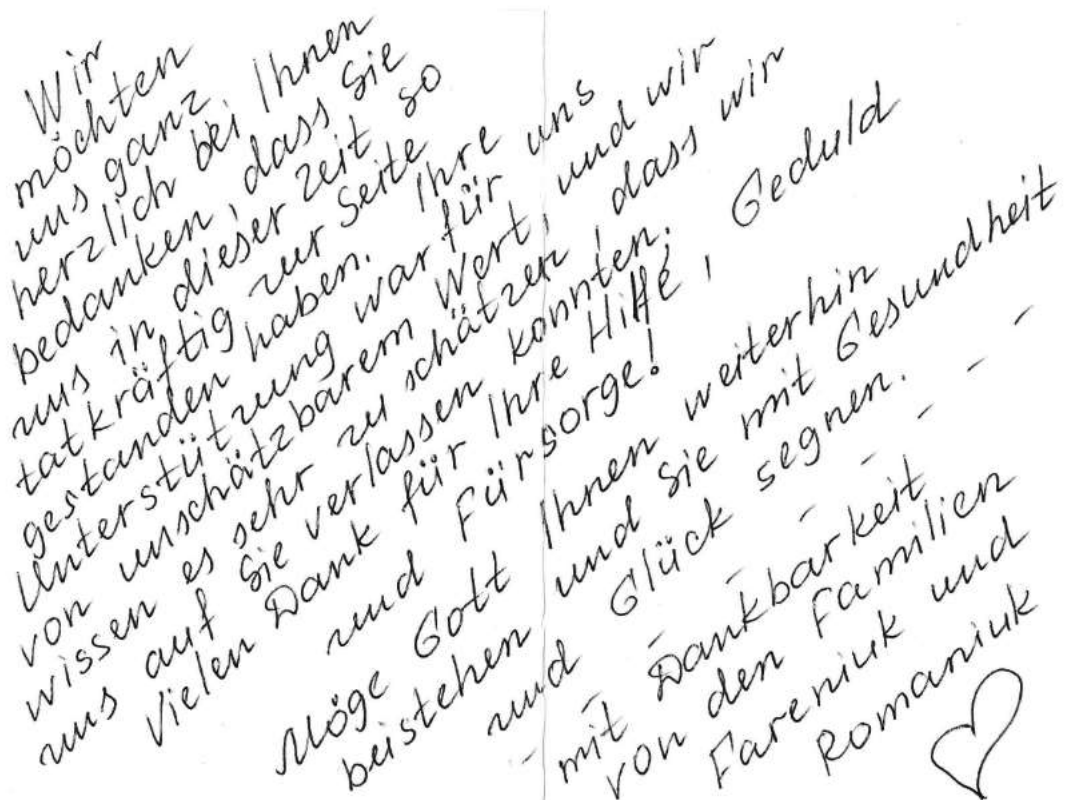 Wir
möchten
uns ganz
herzlich bei Ihnen
bedanken, dass Sie
uns in dieser Zeit so
tatkräftig zur Seite
gestanden haben. Ihre
Unterstützung war für uns
von unschätzbarem Wert, und wir
wissen es sehr zu schätzen, dass wir
uns auf Sie verlassen konnten.
Vielen Dank für Ihre Hilfe, Geduld
und Fürsorge!
Möge Gott Ihnen weiterhin
beistehen und Sie mit Gesundheit
und Glück segnen.
mit Dankbarkeit
von den Familien
Fareniuk und
Romaniuk